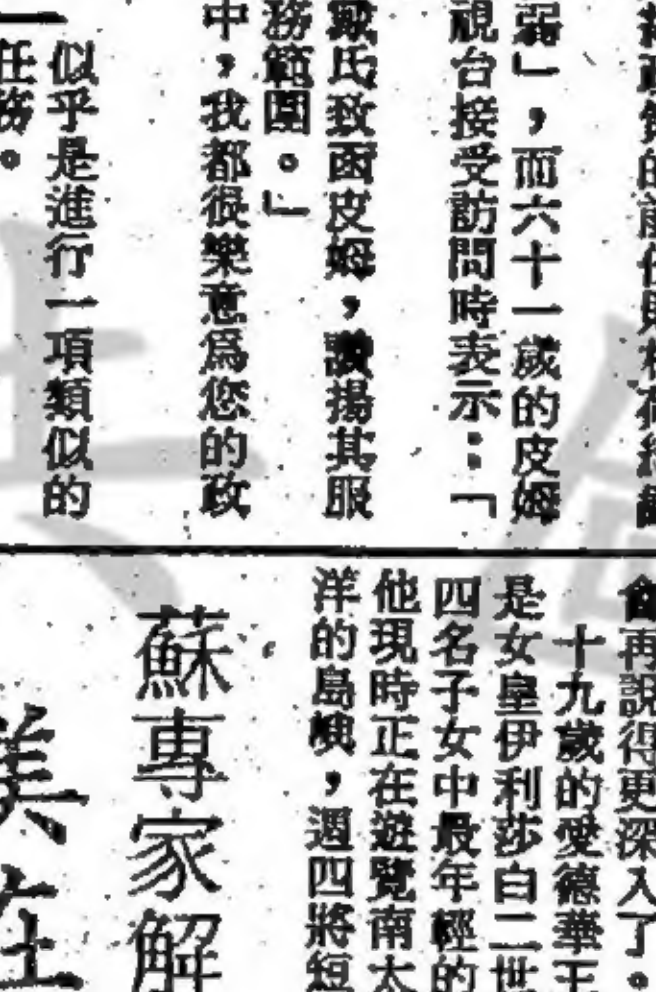 弱」，而六十一歲的皮姆
視台接受訪問時表示：「
戴氏致函皮姆，讚揚其服
務範圍。」
中，我都很樂意爲您的政
似乎是進行一項類似的
一任務。
再說得更深入了。
十九歲的愛德華王
是女皇伊利莎白二世
四名子女中最年輕的
他現時正在遊覽南太
洋的島嶼，週四將短
蘇專家解
美在